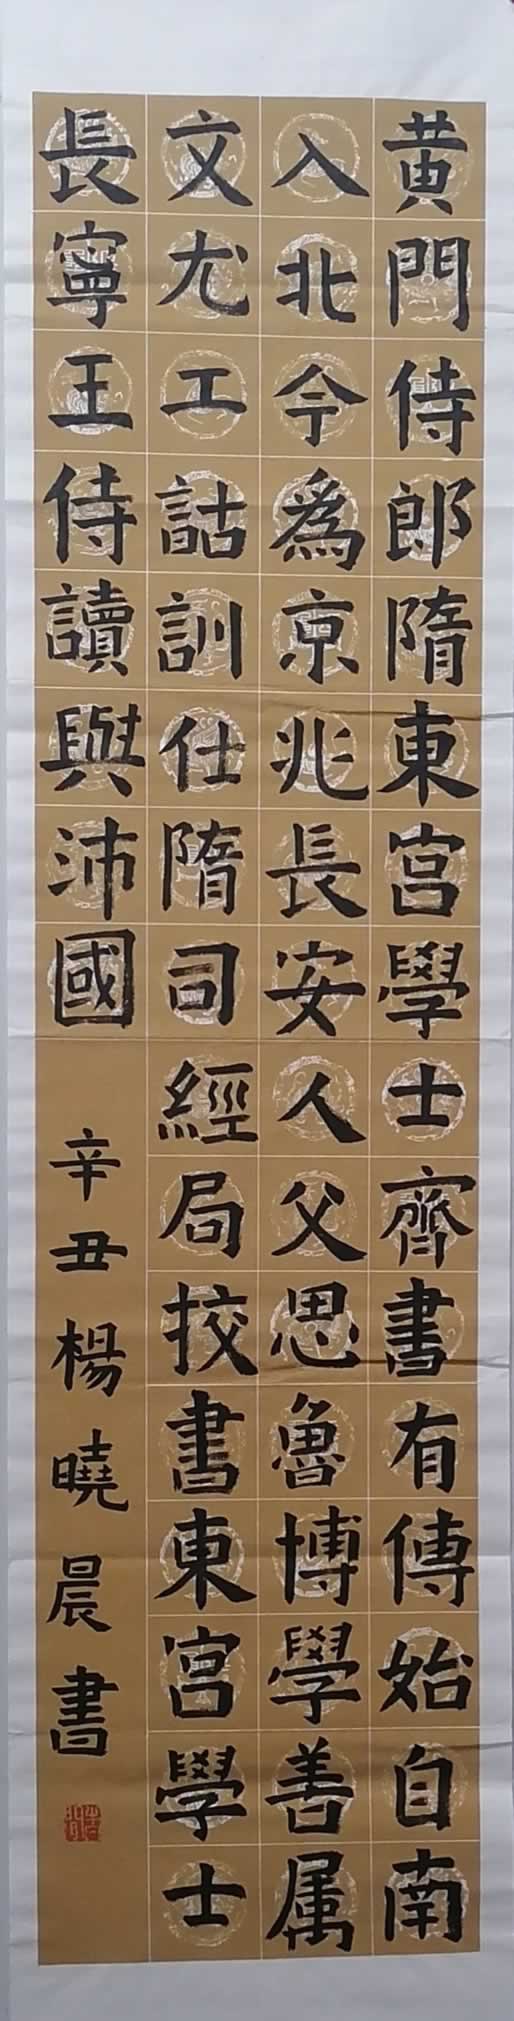 黄門侍郎隋東宫學士齊書有傳始自南
入北今為京兆長安人父思魯博學善属
文尤工詁訓仕隋司經局挍書東宫學士
長寧王侍讀與沛國
辛丑楊曉晨書